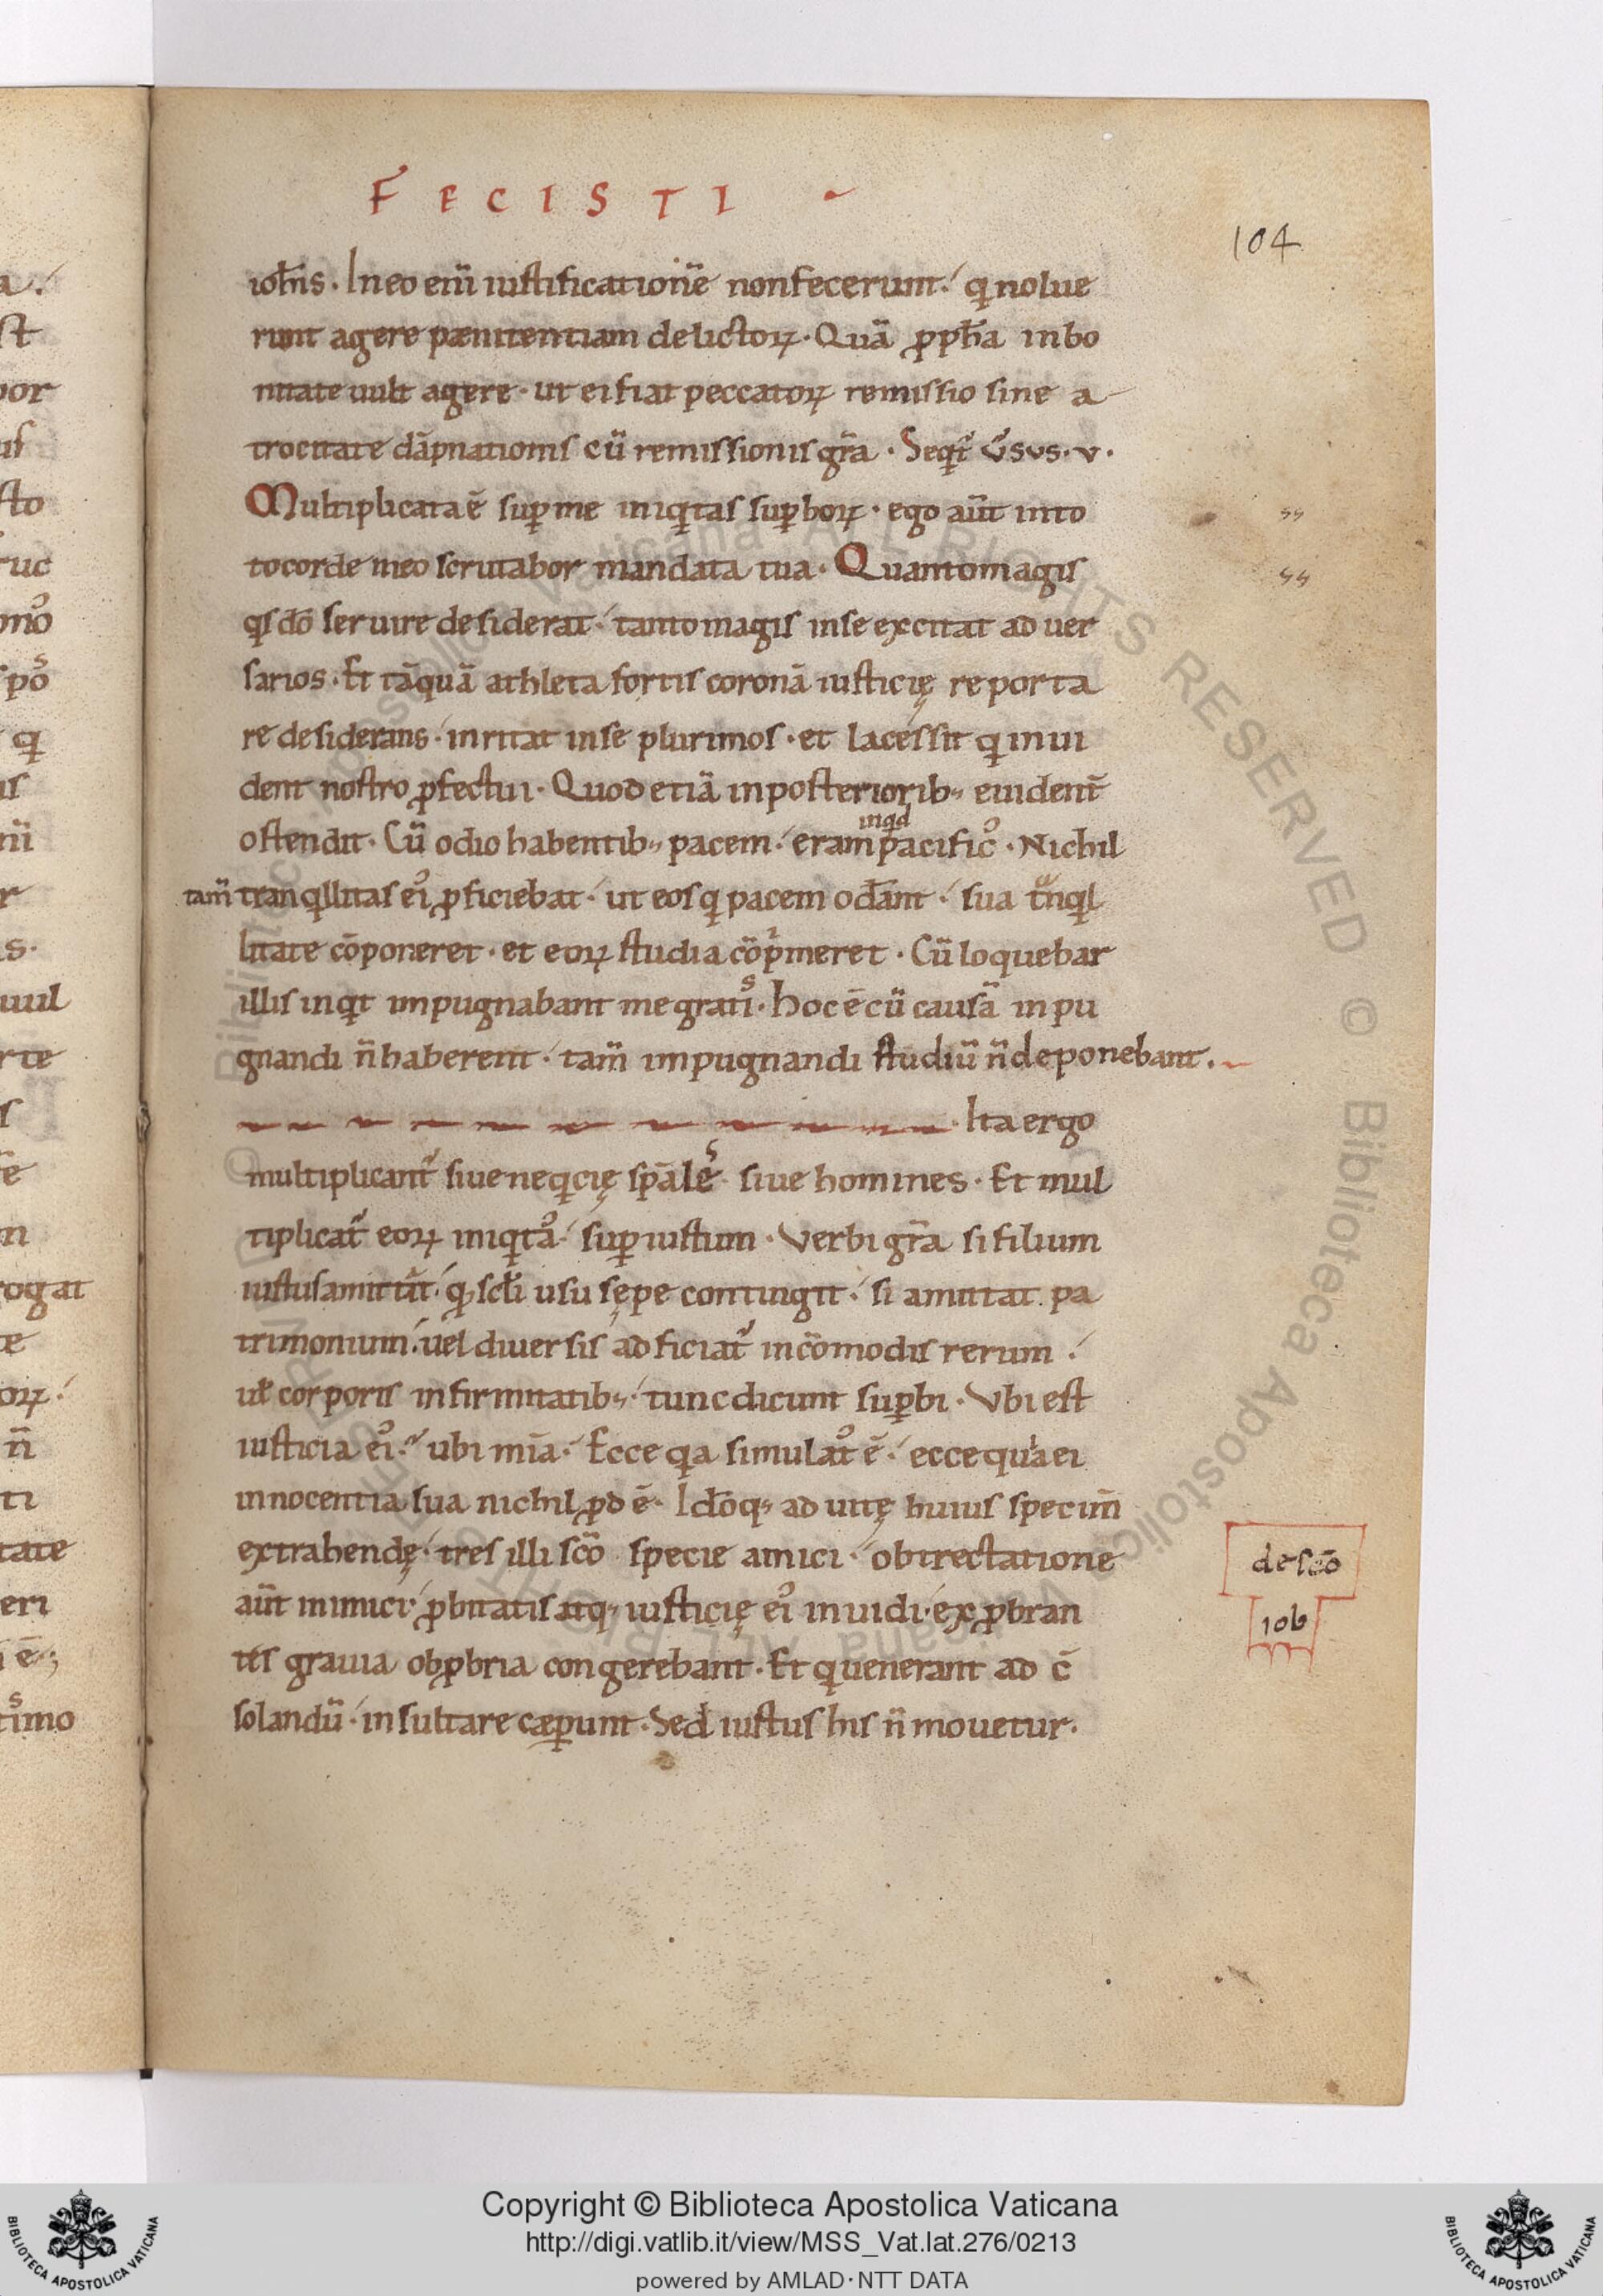 FECISTI
104
ioh̅is. In eo eni̅ iustificatione̅ non fecerunt. qi nolue
runt agere pænitentiam delictoꝝ. Qua̅ ꝓph̅a in bo
nitate uult agere. ut ei fiat peccatoꝝ remissio sine a
trocitate da̅pnationis cu̅ remissionis gr̅a. Seqt̉ ẻsvs. v.
Multiplicata e̅ sup̱ me iniqitas sup̱boꝝ. ego aut̅ in to
ss
to corde meo scrutabor mandata tua. Quanto magis
ss
qis do̅ seruire desiderat. tanto magis in se excitat aduer
sarios. Et ta̅qua̅ athleta fortis corona̅ iusticię reporta
re desiderans. inritat in se plurimos. et lacessit qi inui
dent nostro ꝓfectui. Quod etia̅ in posteriorib; euident̅
inqid
ostendit. Cu̅ odio habentib; pacem. eram pacificꝰ. Nichil
tam̅ tranqillitas eiꝰ ꝓficiebat. ut eos qi pacem oder̅ant. sua tͣnqil
litate co̅poneret. et eoꝝ studia co̅pⁱmeret. Cu̅ loquebar
illis inqit impugnabant me gratiˢ. Hoc e̅ cu̅ causa̅ inpu
gnandi n̅ haberent. tam̅ impugnandi studiu̅ n̅ deponebant.
Ita ergo
multiplicant̉ siue neqicię sp̅aleˢ siue homines. Et mul
tiplicat̉ eoꝝ iniqitaꝰ. sup̱ iustum. Verbi gr̅a si filium
iustus amittat̅. qd scl̅i usu sępe contingit. si amittat pa
trimonium. uel diuersis adficiat̉ inco̅modis rerum.
ul̅ corporis infirmitatib;. tunc dicunt sup̱bi. Vbi est
iusticia eiꝰ. ubi mi̅a. Ecce qia simulatꝰ e̅. ecce quia ei
innocentia sua nichil ꝓd e̅. Id̅oq; ad uitę huius specim̅
extrahendę. tres illi sc̅o specie amici. obtrectatione
de sc̅o
aut̅ inimici. ꝓbitatis atq; iusticię eiꝰ inuidi. exꝓbran
iob
tes grauia obꝓbria congerebant. Et qi uenerant ad c̅
solandu̅. insultare cæp̱unt. Sed iustus his n̅ mouetur.
Copyright © Biblioteca Apostolica Vaticana
http://digi.vatlib.it/view/MSS_Vat.lat.276/0213
powered by AMLAD·NTT DATA